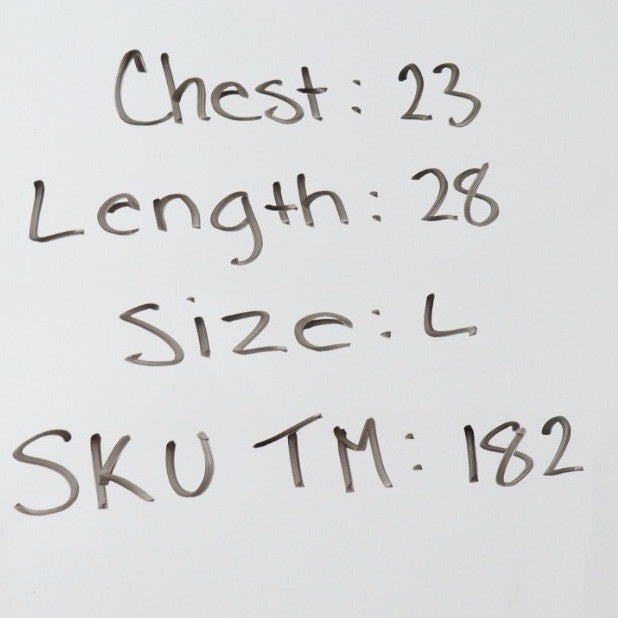 Chest: 23
Length: 28
Size: L
SKU TM: 182